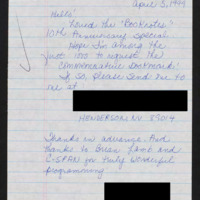 April 5, 1999
Hello!
Loved the "Booknotes"
10th Anniversary special
Hope I'm among the
first 1000 to request the
Commemorative Bookmark!
If so, please send one to
me at
HENDERSON NV 89014
Thanks in advance. And
thanks to Brian Lamb and
C-SPAN for truly wonderful
programming